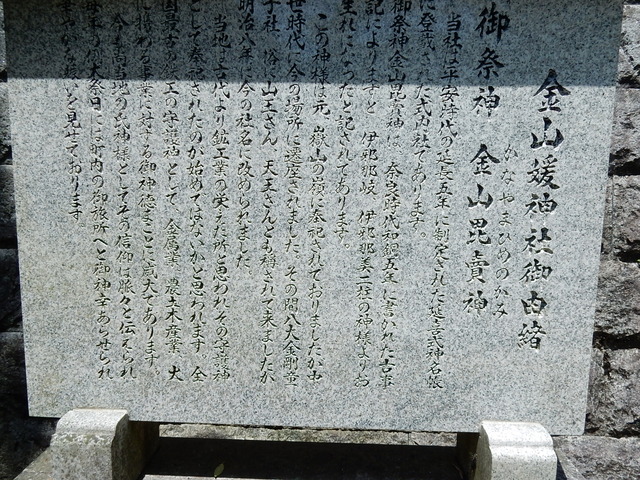 金山媛神社御由緒
かなやまひめのかみ
御祭神 金山毘賣神
当社は平安時代の延長五年に制定された延喜式神名帳
に登載された式内社であります。
御祭神金山毘賣神は、奈良時代和銅五年に書かれた古事
記によりますと 伊邪那岐、伊邪那美二柱の神様よりお
生れになったと記されてあります。
この神様は元、嶽山の嶺に奉祀されておりましたが中
世時代に今の場所に遷座されました。その間八大金剛童
子社、俗に山王さん、天王さんとも稱されて来ましたが
明治八年に今の社名に改められました。
当地は古代より鉱工業の栄えた所と思われその守護神
として奉祀されたのが始めてはないかと思われます 全
国最古の鉱工の守護神として、金属業、農土木産業、火
に接わる事業に対する御神徳まことに蔵大であります。
今も尚当地の氏神様としてその信仰は脈々と伝えられ
の大祭日には町内の御旅所へと御神幸あらせられ
を見せております